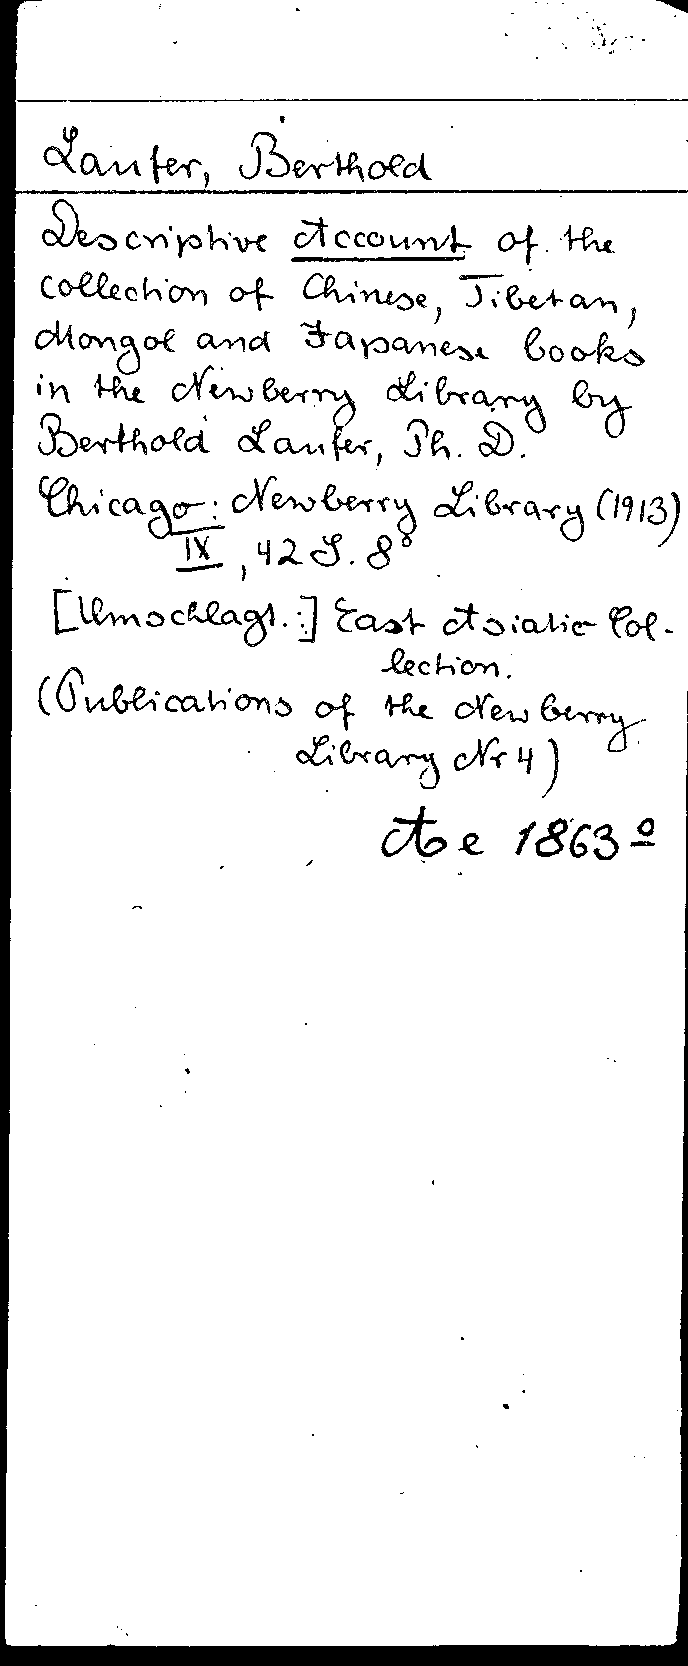 Laufer, Berthold
Descriptive Account of the
collection of Chinese, Tibetan,
Mongol and Japanese books
in the Newberry Library by
Berthold Laufer, Ph. D.
Chicago: Newberry Library (1913)
IX, 42 S. 8°
[Umschlagt.:] East Asiatic Col-
lection.
(Publications of the Newberry
Library Nr 4)
Ae 1863º